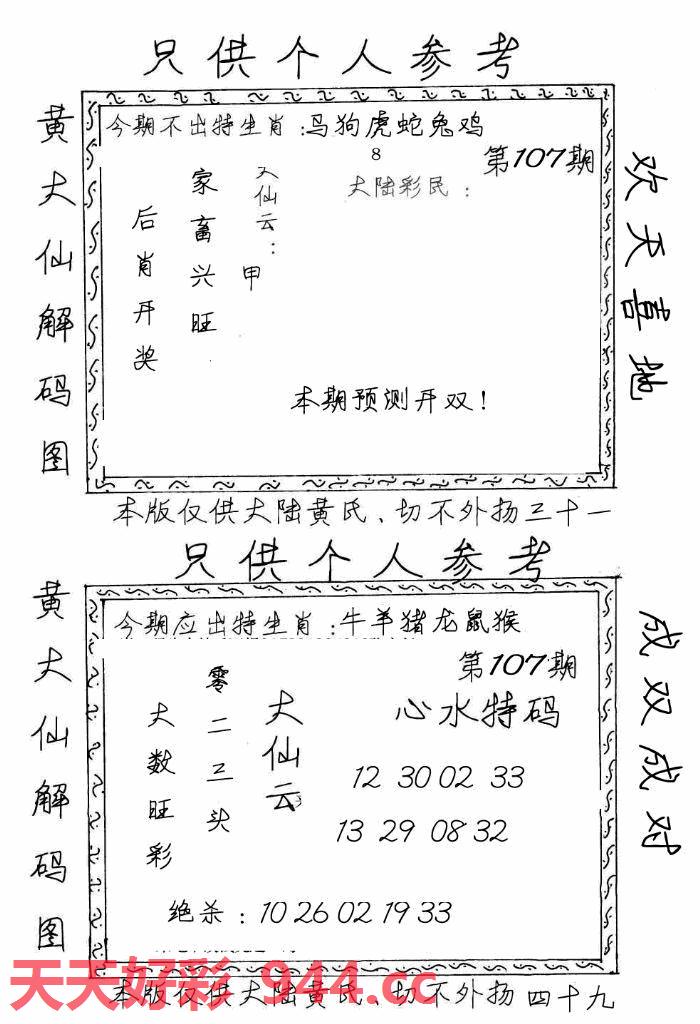 只供个人参考
黄大仙解码图
今期不出特生肖:马狗虎蛇兔鸡
8
第107期
大陆彩民:
大仙云:
甲
家畜兴旺
后肖开奖
本期预测开双!
欢天喜地
本版仅供大陆黄氏、切不外扬三十一
只供个人参考
黄大仙解码图
今期应出特生肖:牛羊猪龙鼠猴
第107期
心水特码
大仙云
零二三头
大数旺彩
12 30 02 33
13 29 08 32
绝杀:10 26 02 19 33
成双成对
天天好彩 944.cc
本版仅供大陆黄氏、切不外扬四十九